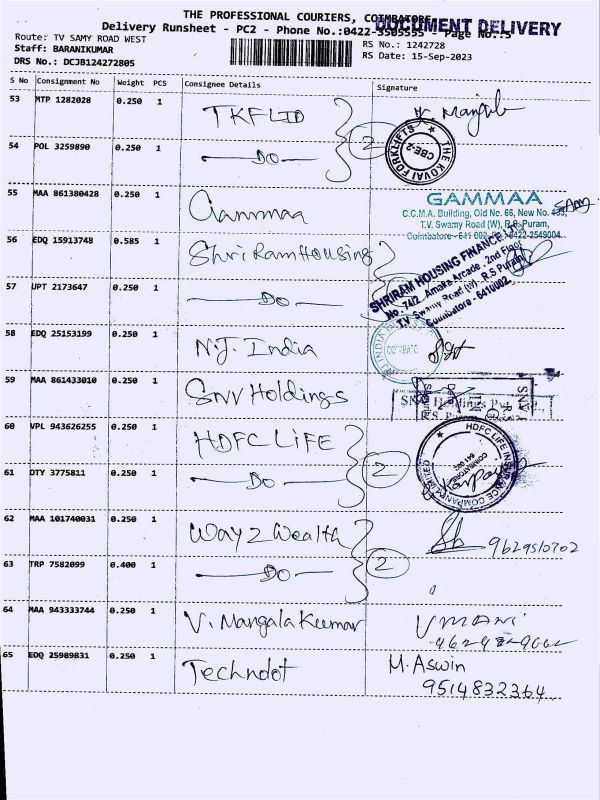 THE PROFESSIONAL COURIERS, COIMBATORE
DOCUMENT DELIVERY
Delivery Runsheet - PC2 - Phone No.:0422-3505555 - Page No.:5
Route: TV SAMY ROAD WEST
RS No.: 1242728
Staff: BARANIKUMAR
RS Date: 15-Sep-2023
DRS No.: DCJB124272805
S No Consignment No Weight PCS Consignee Details Signature
53 MTP 1282028 0.250 1 TKFLID
54 POL 3259890 0.250 1 —DO— 2
THE KOVAI FORKLIFTS CBE-2
55 MAA 861380428 0.250 1 Gammaa
GAMMAA
C.C.M.A. Building, Old No. 66, New No.
T.V. Swamy Road (W), R.S. Puram,
Coimbatore - 641 002. 0422-2549004
56 EDQ 15913748 0.585 1 Shri Ram Housing
57 UPT 2173647 0.250 1 —DO—
SHRIRAM HOUSING FINANCE
No. 74/2, Amoka Arcade, 2nd Floor
T.V. Swamy Road (W), R.S Puram
Coimbatore - 641002
58 EDQ 25153199 0.250 1 N.J. India
59 MAA 861433010 0.250 1 Snv Holdings
60 VPL 943626255 0.250 1 HDFC LIFE
61 OTY 3775811 0.250 1 —DO— 2
HDFC LIFE INSURANCE COMPANY LIMITED
COIMBATORE
641 002
62 MAA 101740031 0.250 1 Way 2 Wealth 9629510702
63 TRP 7582099 0.400 1 —DO— 2
64 MAA 943333744 0.250 1 V. Mangala Kumar UMANI
65 EDQ 25989831 0.250 1 Techndot M. Aswin
9514832364